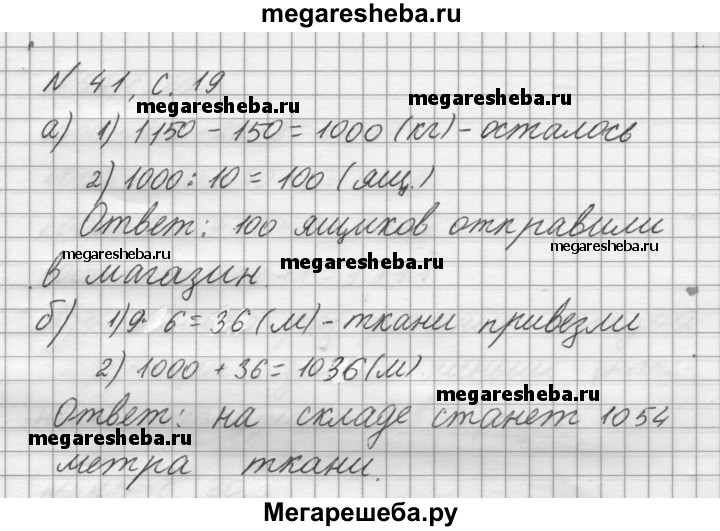 megaresheba.ru
N 41, с. 19
megaresheba.ru
megaresheba.ru
а) 1) 1150 - 150 = 1000 (кг) - осталось
2) 1000 : 10 = 100 (ящ.)
Ответ: 100 ящиков отправили
megaresheba.ru
megaresheba.ru
megaresheba.ru
в магазин.
б) 1) 9 6 = 36 (м) - ткани привезли
2) 1000 + 36 = 1036 (м)
megaresheba.ru
Ответ: на складе станет 1054
megaresheba.ru
метра ткани.
Мегарешеба.ру